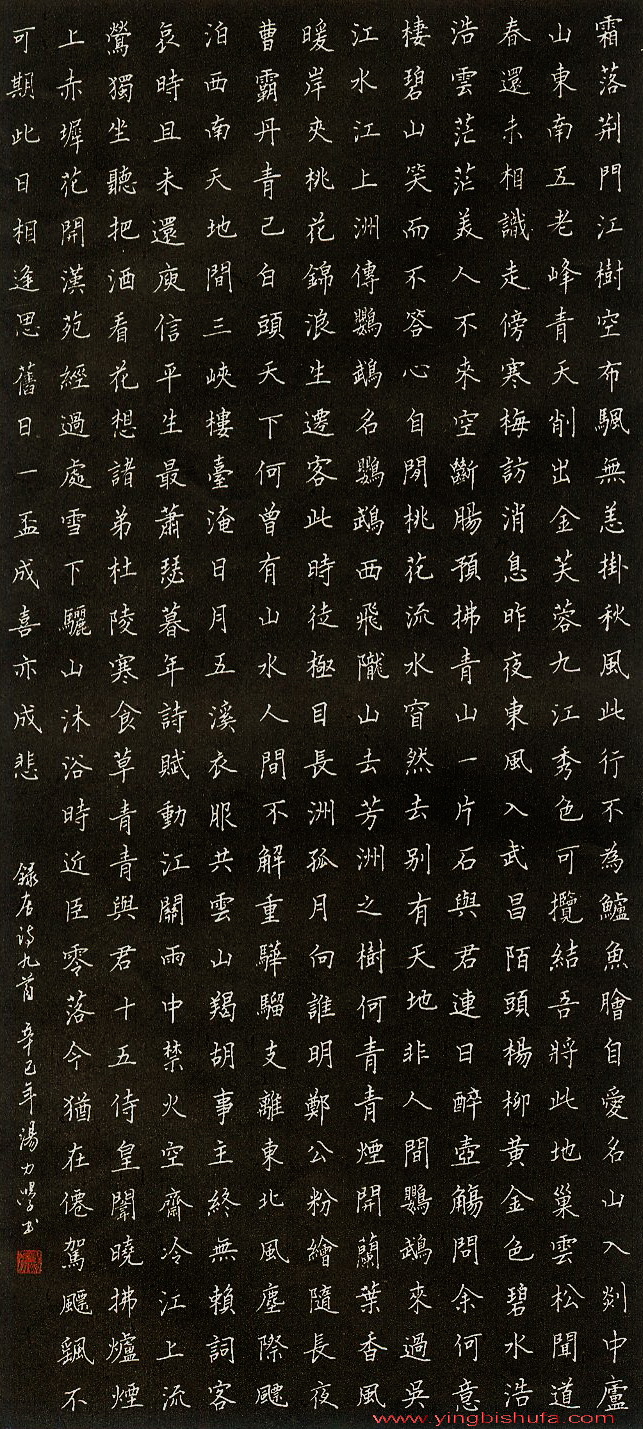 霜落荆門江樹空布颿無恙掛秋風此行不為鱸魚膾自愛名山入剡中廬
山東南五老峰青天削出金芙蓉九江秀色可攬結吾將此地巢雲松聞道
春還未相識走傍寒梅訪消息昨夜東風入武昌陌頭楊柳黃金色碧水浩
浩雲茫茫美人不來空斷腸預拂青山一片石與君連日醉壺觴問余何意
棲碧山笑而不答心自閒桃花流水窅然去别有天地非人間鸚鵡來過吳
江水江上洲傳鸚鵡名鸚鵡西飛隴山去芳洲之樹何青青煙開蘭葉香風
暖岸夾桃花錦浪生遷客此時徒極目長洲孤月向誰明鄭公粉繪隨長夜
曹霸丹青已白頭天下何曾有山水人間不解重驊騮支離東北風塵際飄
泊西南天地間三峽樓臺淹日月五溪衣服共雲山羯胡事主終無賴詞客
哀時且未還庾信平生最蕭瑟暮年詩賦動江關雨中禁火空齋冷江上流
鶯獨坐聽把酒看花想諸弟杜陵寒食草青青與君十五侍皇闈曉拂爐煙
上赤墀花開漢苑經過處雪下驪山沐浴時近臣零落今猶在僊駕飄颻不
可期此日相逢思舊日一盃成喜亦成悲
錄唐詩九首 辛巳年 湯力學書
www.yingbishufa.com